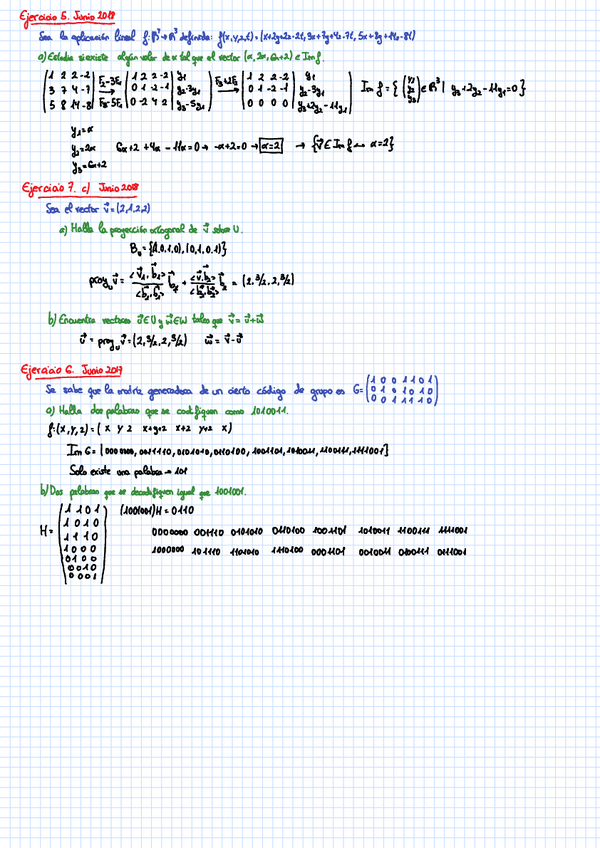 Ejercicio 5. Junio 2018
Sea la aplicación lineal f: R³→R³ definida: f(x,y,z,t)=(x+2y+2z-2t, 3x+7y+4z-7t, 5x+8y+14z-8t)
a) Estudia si existe algún valor de α tal que el vector (α, 2α, 6α+2) ∈ Im f.
1 2 2 -2 F2-3F1 1 2 2 -2 y1 F3+2F2 1 2 2 -2 y1
3 7 4 -7 → 0 1 -2 -1 y2-3y1 → 0 1 -2 -1 y2-3y1 Im f = { (y1 y2 y3) ∈ R³ | y3+2y2-11y1=0 }
5 8 14 -8 F3-5F1 0 -2 4 2 y3-5y1 0 0 0 0 y3+2y2-11y1
y1=α
y2=2α 6α+2+4α-11α=0 → -α+2=0 → α=2 → {v⃗ ∈ Im f ↔ α=2}
y3=6α+2
Ejercicio 7. c) Junio 2018
Sea el vector v⃗=(2,1,2,2)
a) Halla la proyección ortogonal de v⃗ sobre U.
Bu={(1,0,1,0), (0,1,0,1)}
proyu v⃗ = <v⃗1,b⃗1>/<b⃗1,b⃗1> b⃗1 + <v⃗,b⃗2>/<b⃗2,b⃗2> b⃗2 = (2, 3/2, 2, 3/2)
b) Encuentra vectores u⃗∈U y w⃗∈W tales que v⃗=u⃗+w⃗
u⃗ = proyu v⃗=(2, 3/2, 2, 3/2) w⃗ = v⃗-u⃗
Ejercicio 6. Junio 2017
Se sabe que la matriz generadora de un cierto código de grupo es G=
1 0 0 1 1 0 1
0 1 0 1 0 1 0
0 0 1 1 1 1 0
a) Halla dos palabras que se codifiquen como 1010011.
f:(x,y,z)=( x y z x+y+z x+z y+z x)
Im G = {0000000, 0011110, 0101010, 0110100, 1001101, 1010011, 1100111, 1111001}
Solo existe una palabra → 101
b) Dos palabras que se decodifiquen igual que 1001001.
H=
1 1 0 1 (1001001)H = 0110
1 0 1 0
1 1 1 0 0000000 001110 0101010 0110100 1001101 1010011 1100111 1111001
1 0 0 0
0 1 0 0 1000000 101110 1101010 1110100 0001101 0010011 0100111 0111001
0 0 1 0
0 0 0 1